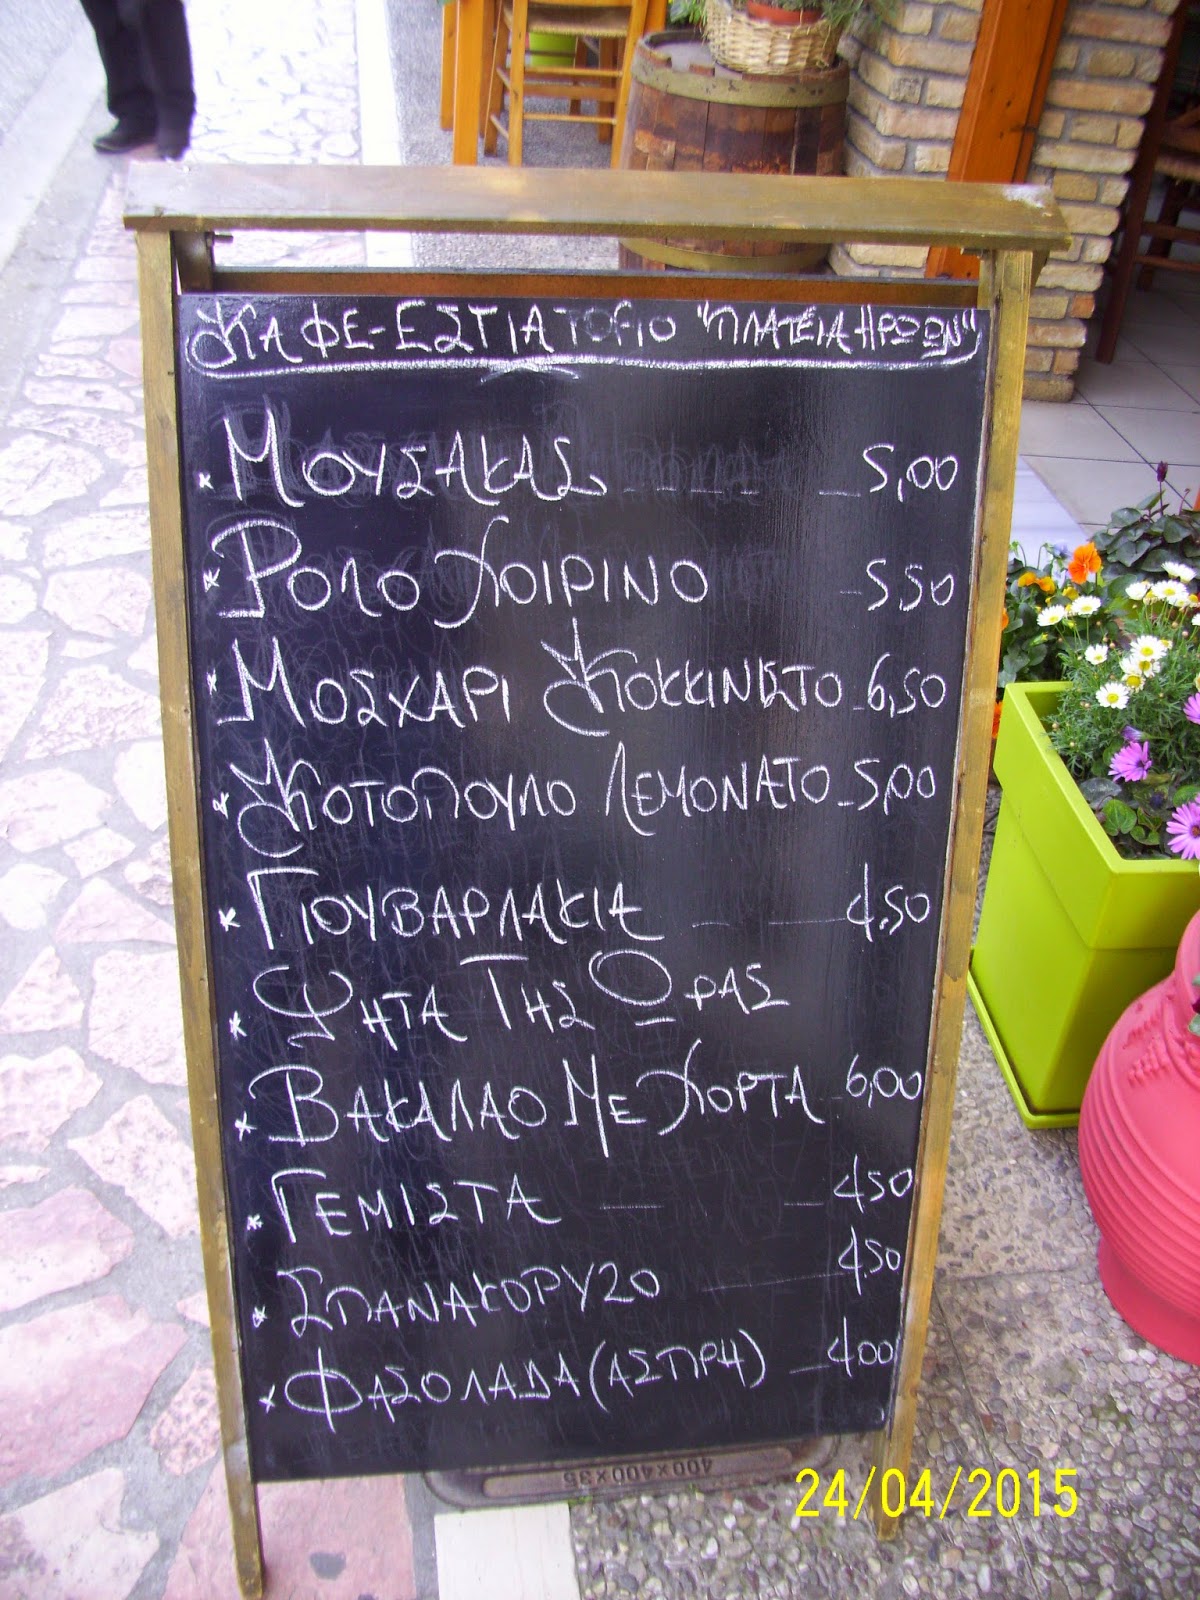 ΚΑΦΕ-ΕΣΤΙΑΤΟΡΙΟ "ΠΛΑΤΕΙΑ ΗΡΩΩΝ"
* ΜΟΥΣΑΚΑΣ 5,00
* ΡΟΛΟ ΧΟΙΡΙΝΟ - 5 50
* ΜΟΣΧΑΡΙ ΚΟΚΚΙΝΙΣΤΟ - 6,50
* ΚΟΤΟΠΟΥΛΟ ΛΕΜΟΝΑΤΟ - 5,00
* ΓΙΟΥΒΑΡΛΑΚΙΑ 4,50
* ΨΗΤΑ ΤΗΣ ΩΡΑΣ
* ΒΑΚΑΛΑΟ ΜΕ ΧΟΡΤΑ 6,00
* ΓΕΜΙΣΤΑ 4 50
* ΣΠΑΝΑΚΟΡΥΖΟ 4,50
* ΦΑΣΟΛΑΔΑ (ΑΣΠΡΗ) - 4 00
400×400×35
24/04/2015